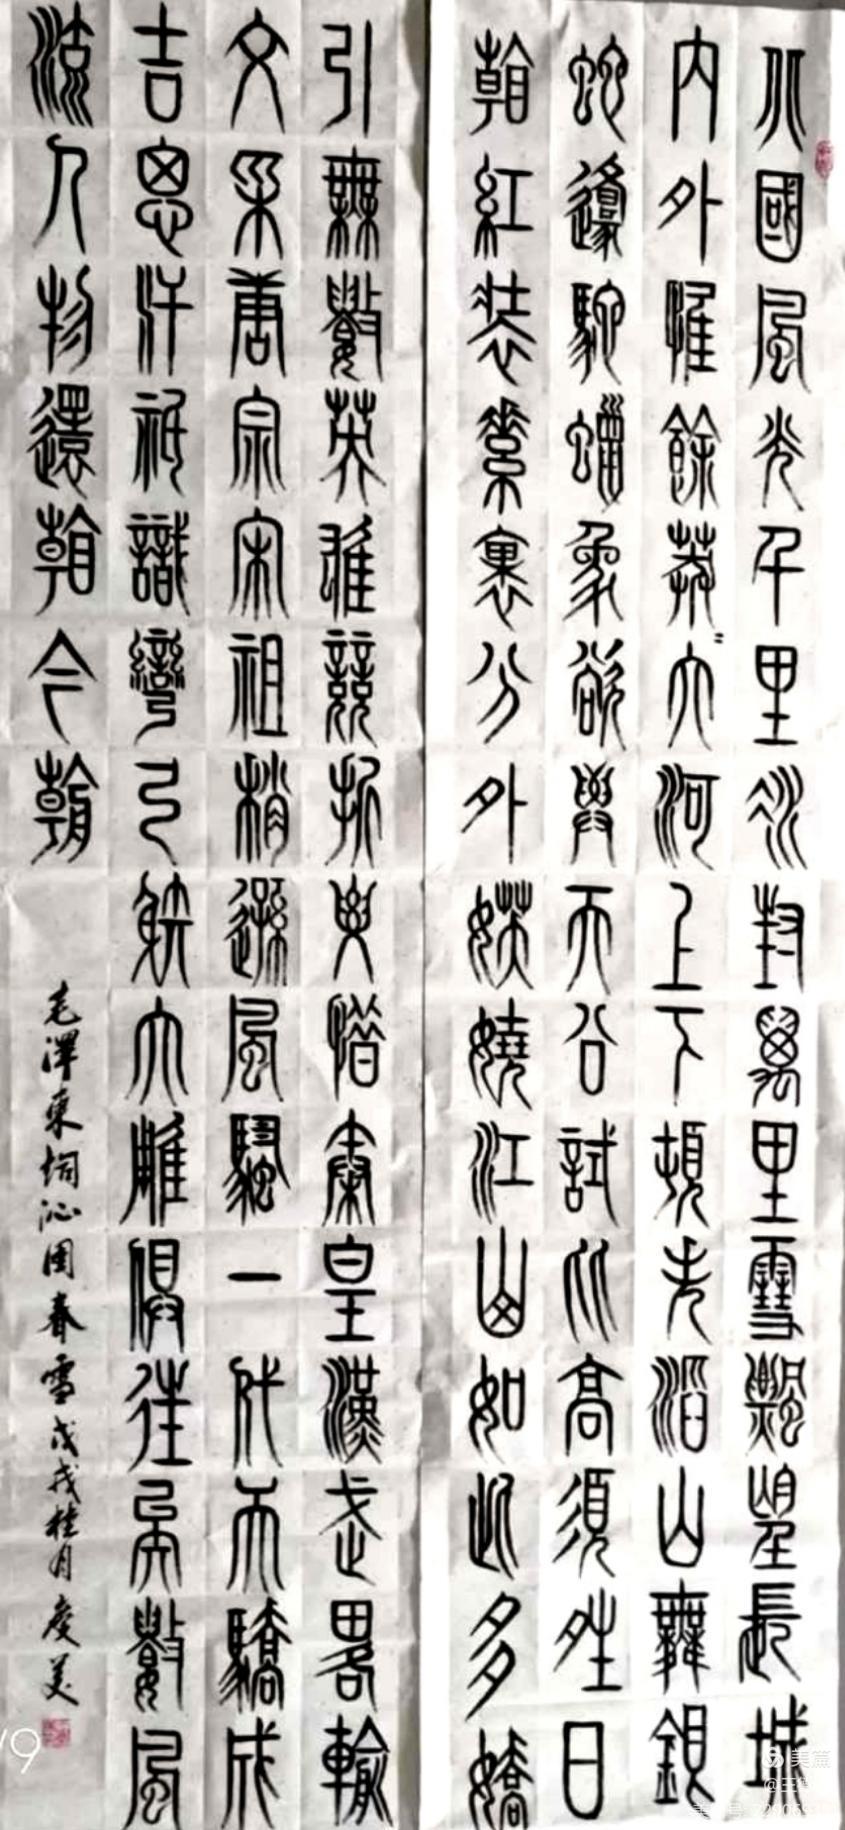 北國風光千里冰封萬里雪飄望長城
内外惟餘莽〻大河上下頓失滔山舞銀
蛇原馳蠟象欲與天公試比高須晴日
看紅裝素裹分外妖嬈江山如此多嬌
引無數英雄競折腰惜秦皇漢武略輸
文采唐宗宋祖稍遜風騷一代天驕成
吉思汗祇識彎弓射大雕俱往矣數風
流人物還看今朝
毛澤東词沁園春雪戊戌桂月慶美
美篇